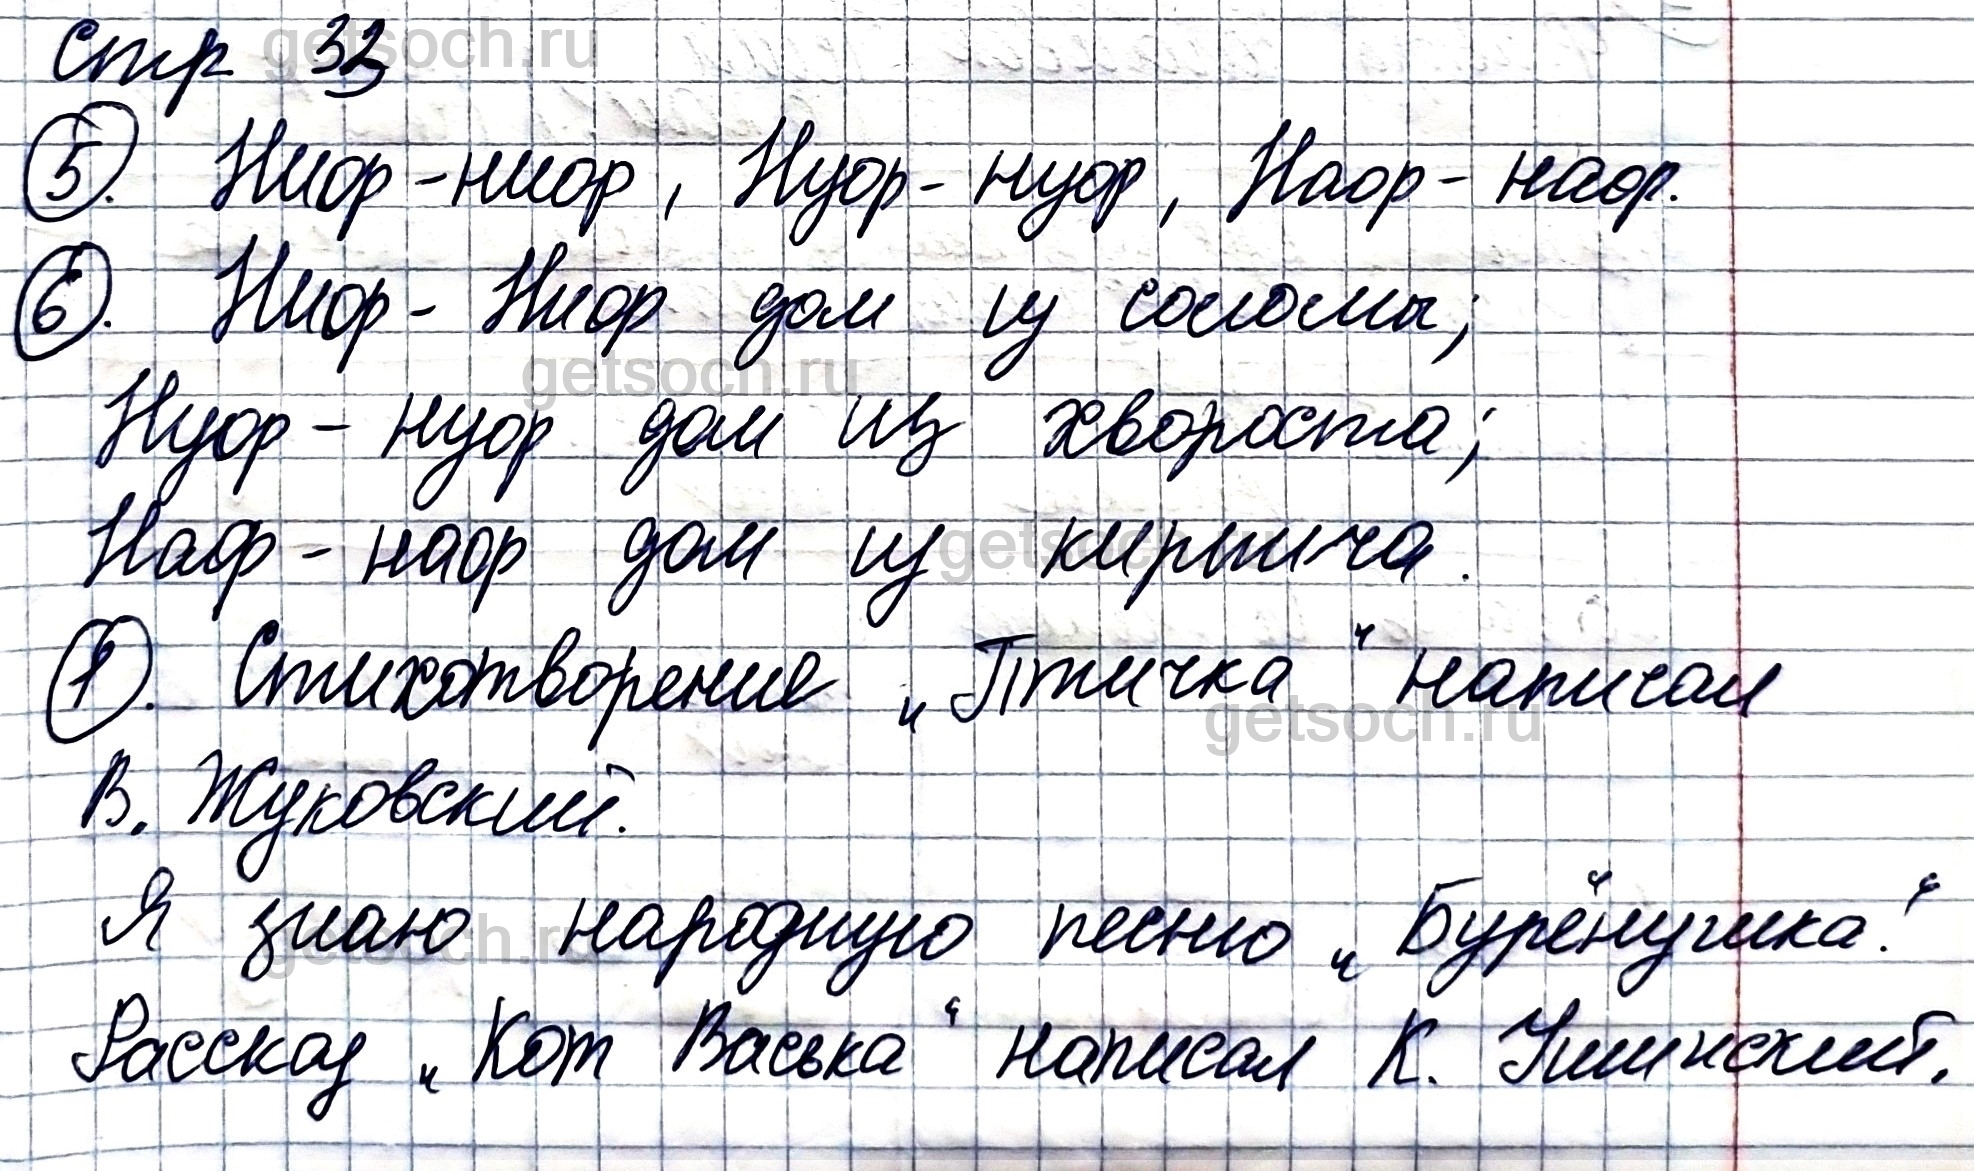 стр 33
5. Ниф-ниф, Нуф-нуф, Наф-наф.
6. Ниф-Ниф дом из соломы;
Нуф-нуф дом из хвороста;
Наф-наф дом из кирпича.
1. Стихотворение „Птичка“ написал
В. Жуковский.
Я знаю народную песню „Бурёнушка.“
Рассказ „Кот Васька“ написал К. Ушинский.
getsoch.ru
getsoch.ru
getsoch.ru
getsoch.ru
getsoch.ru